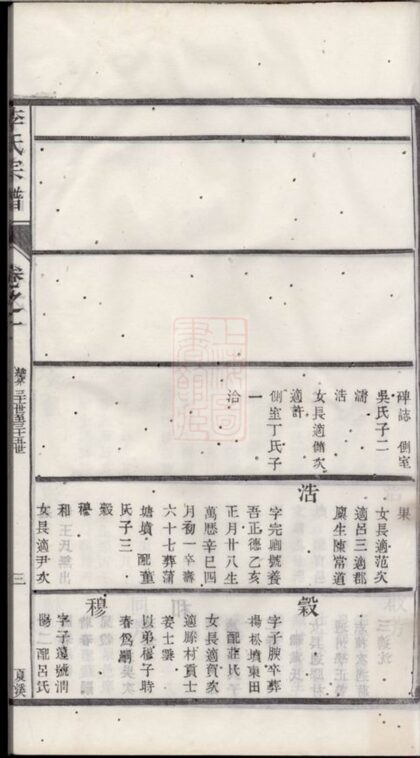 碑誌 側室
吳氏子二
濤
浩
女長適儲次
適許
側室丁氏子
一
洽
果
女長適范次
適呂三適郡
廩生陳常道
浩
字完圃號養
吾正德乙亥
正月廿八生
萬曆辛巳四
月初一卒壽
六十七葬蒲
塘墳 配董
氏子三
穀
穆
和
女長適尹次
穀
字子腴卒葬
楊松墳東田
配莊氏
女長適賀次
適縣村貢士
姜士雲
以弟穆子時
春為嗣
穆
字子蘧號渭
陽二 配呂氏
李氏宗譜
卷之一
三十世至三十五世
三
夏溪